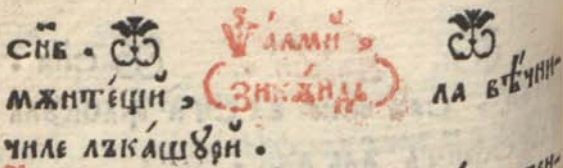 сн҃в . Ѱалмй ,
мѫнтє́щй , (Зикѫ́ндъ) ла вѣ́чни-
чиле лъка́шꙋрй .